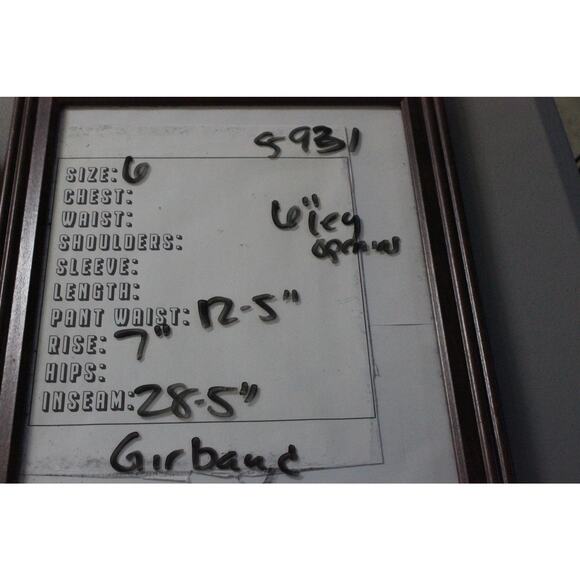 5931
SIZE: 6
CHEST:
WAIST:
6" leg
SHOULDERS:
opening
SLEEVE:
LENGTH:
PANT WAIST: 12-5"
RISE: 7"
HIPS:
INSEAM: 28-5"
Girbaud